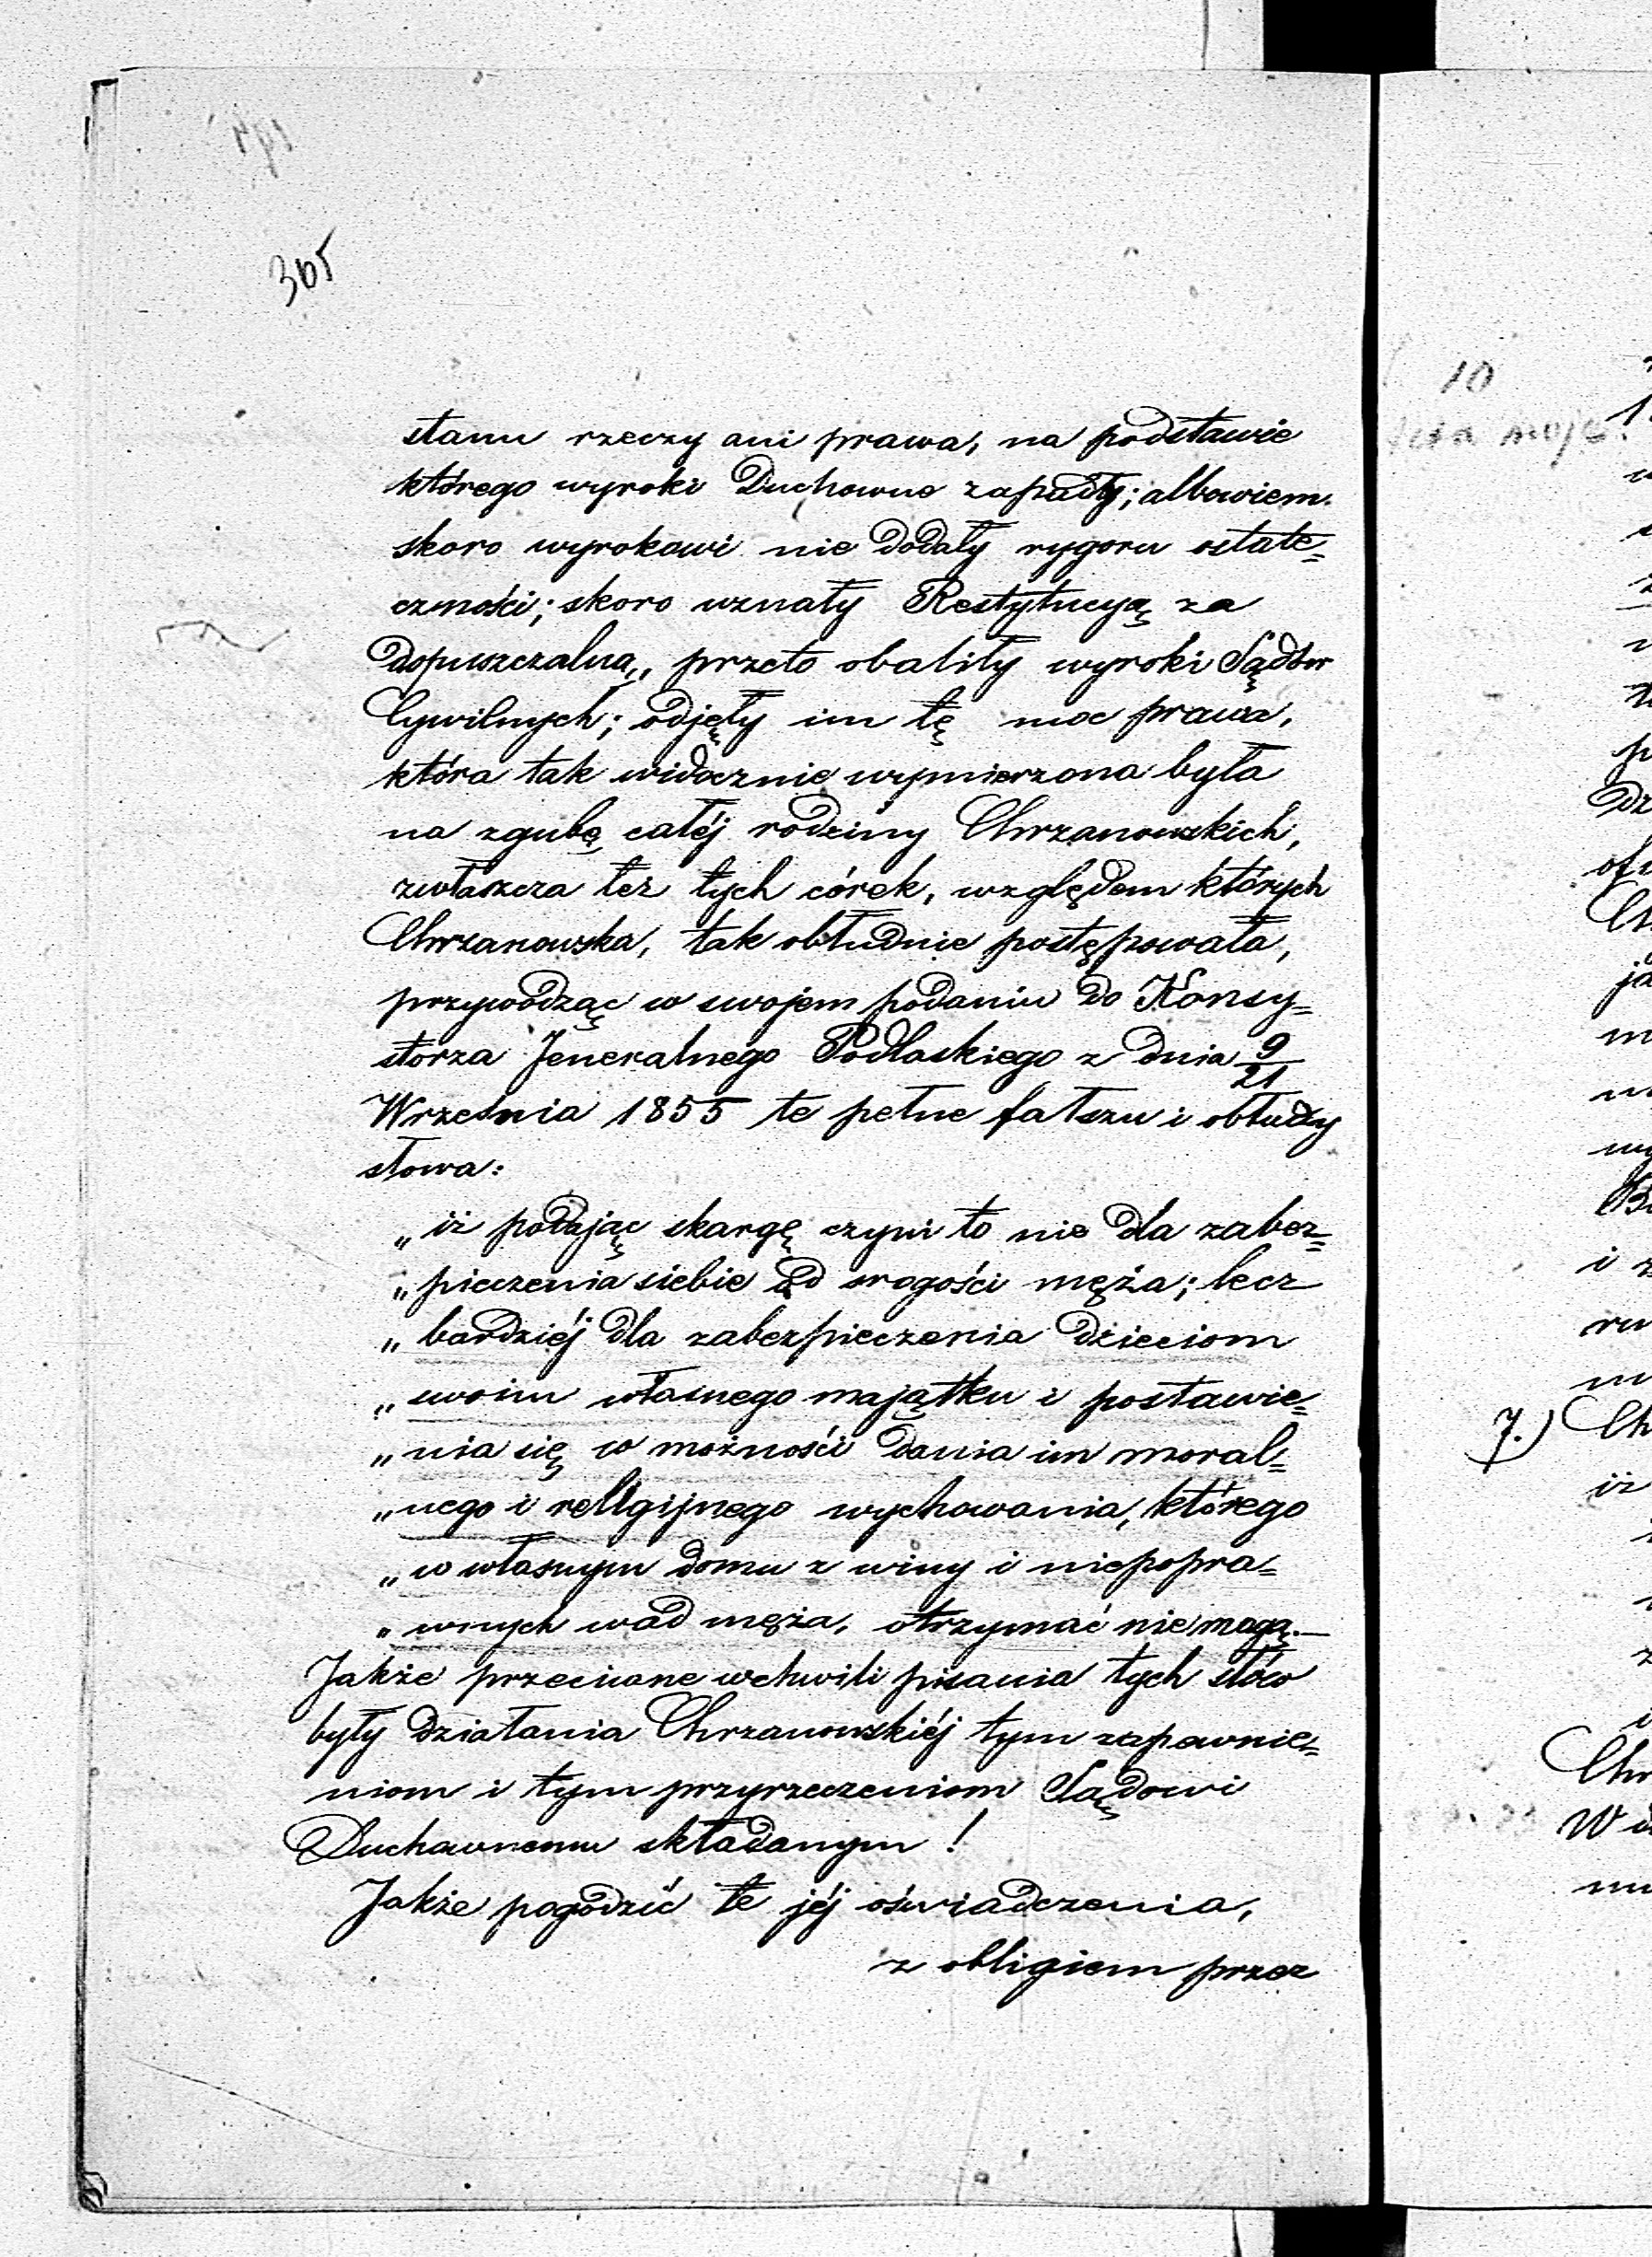 305
stanu rzeczy ani prawa, na podstawie
którego wyroki Duchowne zapadły; albowiem
skoro wyrokowi nie dodały rygoru osta­te=
czności; skoro uznały Restytucyą za
dopuszczalną, przeto obaliły wyroki Sądów
Cywilnych; odjęły im tę moc prawa,
która tak widocznie wymierzona była
na zgubę całéj rodziny Chrzanowskich,
zwłaszcza też tych córek, względem których
Chrzanowska, tak obłudnie postępowała,
przywodząc w swojem podaniu do Konsy=
storza Jeneralnego Podlaskiego z dnia 9/21
Września 1855 te pełne fałszu i obłudy
słowa:
„iż podając skargę czyni to nie dla zabez=
„pieczenia siebie od srogości męża; lecz
„bardziéj dla zabezpieczenia dzieciom
„swoim własnego majątku i postawie=
„nia się w możności dania im moral=
„nego i religijnego wychowania, którego
„w własnym domu z winy i niepopra=
„wnych wad męża, otrzymać nie mogą.—
Jakże przeciwne w chwili pisania tych słów
były działania Chrzanowskiéj tym zapewnie=
niom i tym przyrzeczeniom Sądowi
Duchownemu składanym!
Jakże pogodzić te jéj oświadczenia,
z obligiem przez
10
7.)